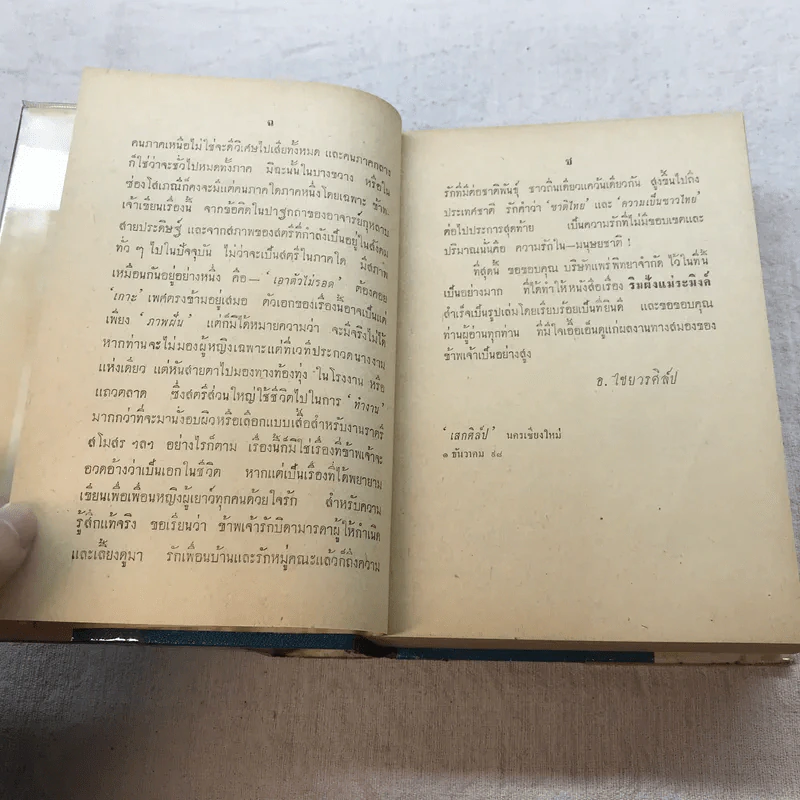 ฉ
คนภาคเหนือไม่ใช่จะดีวิเศษไปเสียทั้งหมด และคนภาคกลาง
ก็ใช่ว่าจะชั่วไปหมดทั้งภาค มิฉะนั้นในบางขวาง หรือใน
ซ่องโสเภณีก็คงจะมีแต่คนภาคใดภาคหนึ่งโดยเฉพาะ ข้าพ-
เจ้าเขียนเรื่องนี้ จากข้อคิดในปาฐกถาของอาจารย์กุหลาบ
สายประดิษฐ์ และจากสภาพของสตรีที่กำลังเป็นอยู่ในสังคม
ทั่ว ๆ ไปในปัจจุบัน ไม่ว่าจะเป็นสตรีในภาคใด มีสภาพ
เหมือนกันอยู่อย่างหนึ่ง คือ—'เอาตัวไม่รอด' ต้องคอย
'เกาะ' เพศตรงข้ามอยู่เสมอ ตัวเอกของเรื่องนี้อาจเป็นแต่
เพียง 'ภาพฝัน' แต่ก็มิได้หมายความว่า จะมีจริงไม่ได้
หากท่านจะไม่มองผู้หญิงเฉพาะแต่ที่เวทีประกวดนางงาม
แห่งเดียว แต่หันสายตาไปมองทางท้องทุ่ง ในโรงงาน หรือ
แถวตลาด ซึ่งสตรีส่วนใหญ่ใช้ชีวิตไปในการ 'ทำงาน'
มากกว่าที่จะมานั่งอบผิวหรือเลือกแบบเสื้อสำหรับงานราตรี
สโมสร ฯลฯ อย่างไรก็ตาม เรื่องนี้ก็มิใช่เรื่องที่ข้าพเจ้าจะ
อวดอ้างว่าเป็นเอกในชีวิต หากแต่เป็นเรื่องที่ได้พยายาม
เขียนเพื่อเพื่อนหญิงผู้เยาว์ทุกคนด้วยใจรัก สำหรับความ
รู้สึกแท้จริง ขอเรียนว่า ข้าพเจ้ารักบิดามารดาผู้ให้กำเนิด
และเลี้ยงดูมา รักเพื่อนบ้านและรักหมู่คณะแล้วก็ถึงความ
ช
รักที่มีต่อชาติพันธุ์ ชาวถิ่นเดียวแคว้นเดียวกัน สูงขึ้นไปถึง
ประเทศชาติ รักคำว่า 'ชาติไทย' และ 'ความเป็นชาวไทย'
ต่อไปประการสุดท้าย เป็นความรักที่ไม่มีขอบเขตและ
ปริมาณนั้นคือ ความรักใน—มนุษยชาติ !
ที่สุดนี้ ขอขอบคุณ บริษัทแพร่พิทยาจำกัด ไว้ในที่นี้
เป็นอย่างมาก ที่ได้ทำให้หนังสือเรื่อง ริมฝั่งแม่ระมิงค์
สำเร็จเป็นรูปเล่มโดยเรียบร้อยเป็นที่ยินดี และขอขอบคุณ
ท่านผู้อ่านทุกท่าน ที่มีใจเอื้อเอ็นดูแก่ผลงานทางสมองของ
ข้าพเจ้าเป็นอย่างสูง
อ. ไชยวรศิลป์
'เสกศิลป์' นครเชียงใหม่
๑ ธันวาคม ๙๘